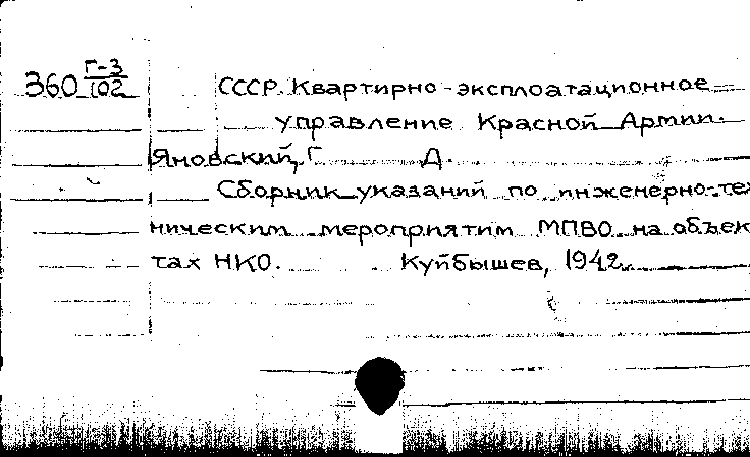 360 Г-3
102
СССР. Квартирно-эксплоатационное
управление Красной Армии.
Яновский, Г Д
Сборник указаний по инженерно-тех
ническим мероприятим МПВО на объек
тах НКО. Куйбышев, 1942.